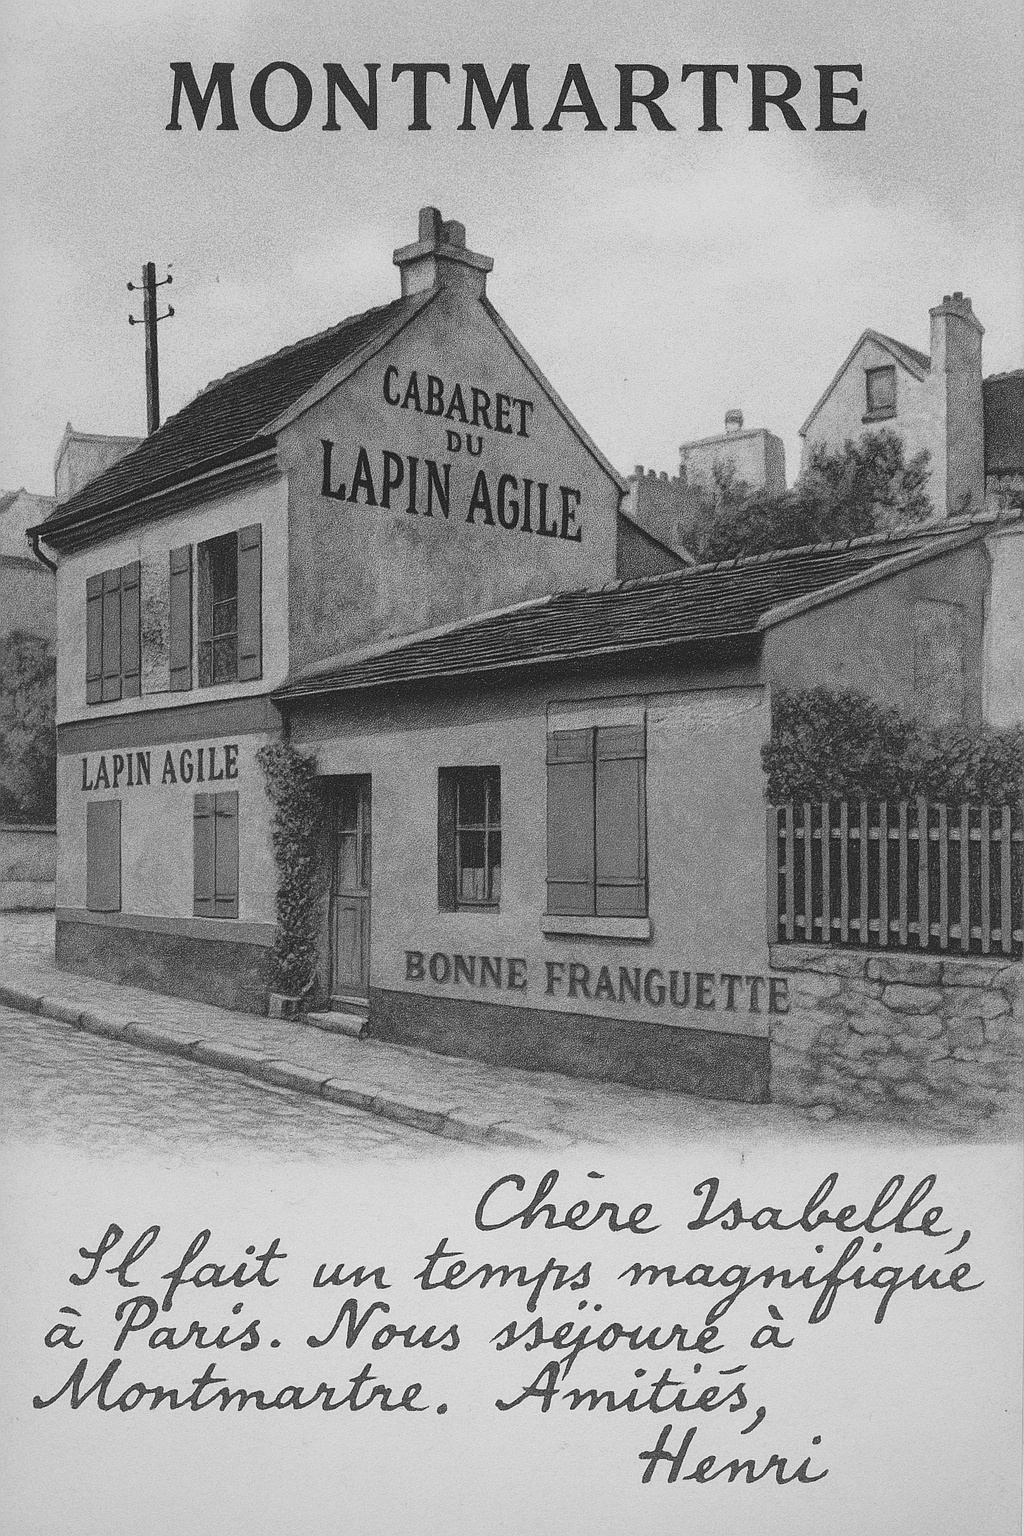 MONTMARTRE
CABARET
DU
LAPIN AGILE
LAPIN AGILE
BONNE FRANGUETTE
Chère Isabelle,
Il fait un temps magnifique
à Paris. Nous sséjoure à
Montmartre. Amitiés,
Henri